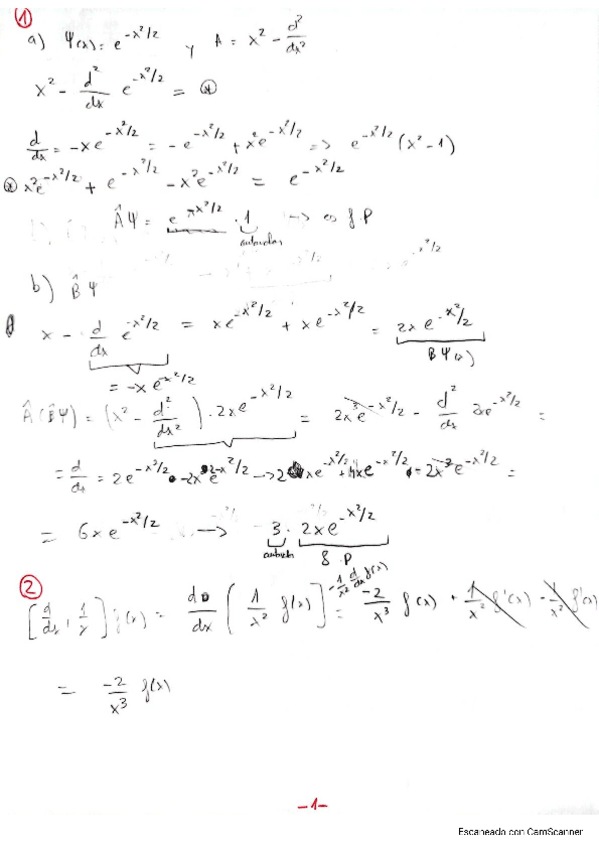 ①
a) Ψ(x) = e^{-x²/2} y A = x² - d²/dx²
x² - d²/dx e^{-x²/2} = ⊛
d/dx = -xe^{-x²/2} = -e^{-x²/2} + x²e^{-x²/2} => e^{-x²/2} (x² - 1)
⊛ x²e^{-x²/2} + e^{-x²/2} - x²e^{-x²/2} = e^{-x²/2}
ÂΨ = · 1 → es f.P
autovalor
b) B̂Ψ
x - d/dx e^{-x²/2} = xe^{-x²/2} + xe^{-x²/2} = 2xe^{-x²/2}
BΨ(x)
= -xe^{-x²/2}
Â(B̂Ψ) = (x² - d²/dx²) · 2xe^{-x²/2} = 2x³e^{-x²/2} - d²/dx 2xe^{-x²/2} =
= d/dx = 2e^{-x²/2} - 2x²e^{-x²/2} → xe^{-x²/2} + 4xe^{-x²/2} - 2x³e^{-x²/2} =
= 6xe^{-x²/2} → 3 · 2xe^{-x²/2}
autovalor f.P
②
[d/dx, 1/x] f(x) = d/dx (1/x² f(x)) - 1/x² d/dx f(x) = -2/x³ f(x) + 1/x² f'(x) - 1/x² f'(x)
= -2/x³ f(x)
-1-
Escaneado con CamScanner